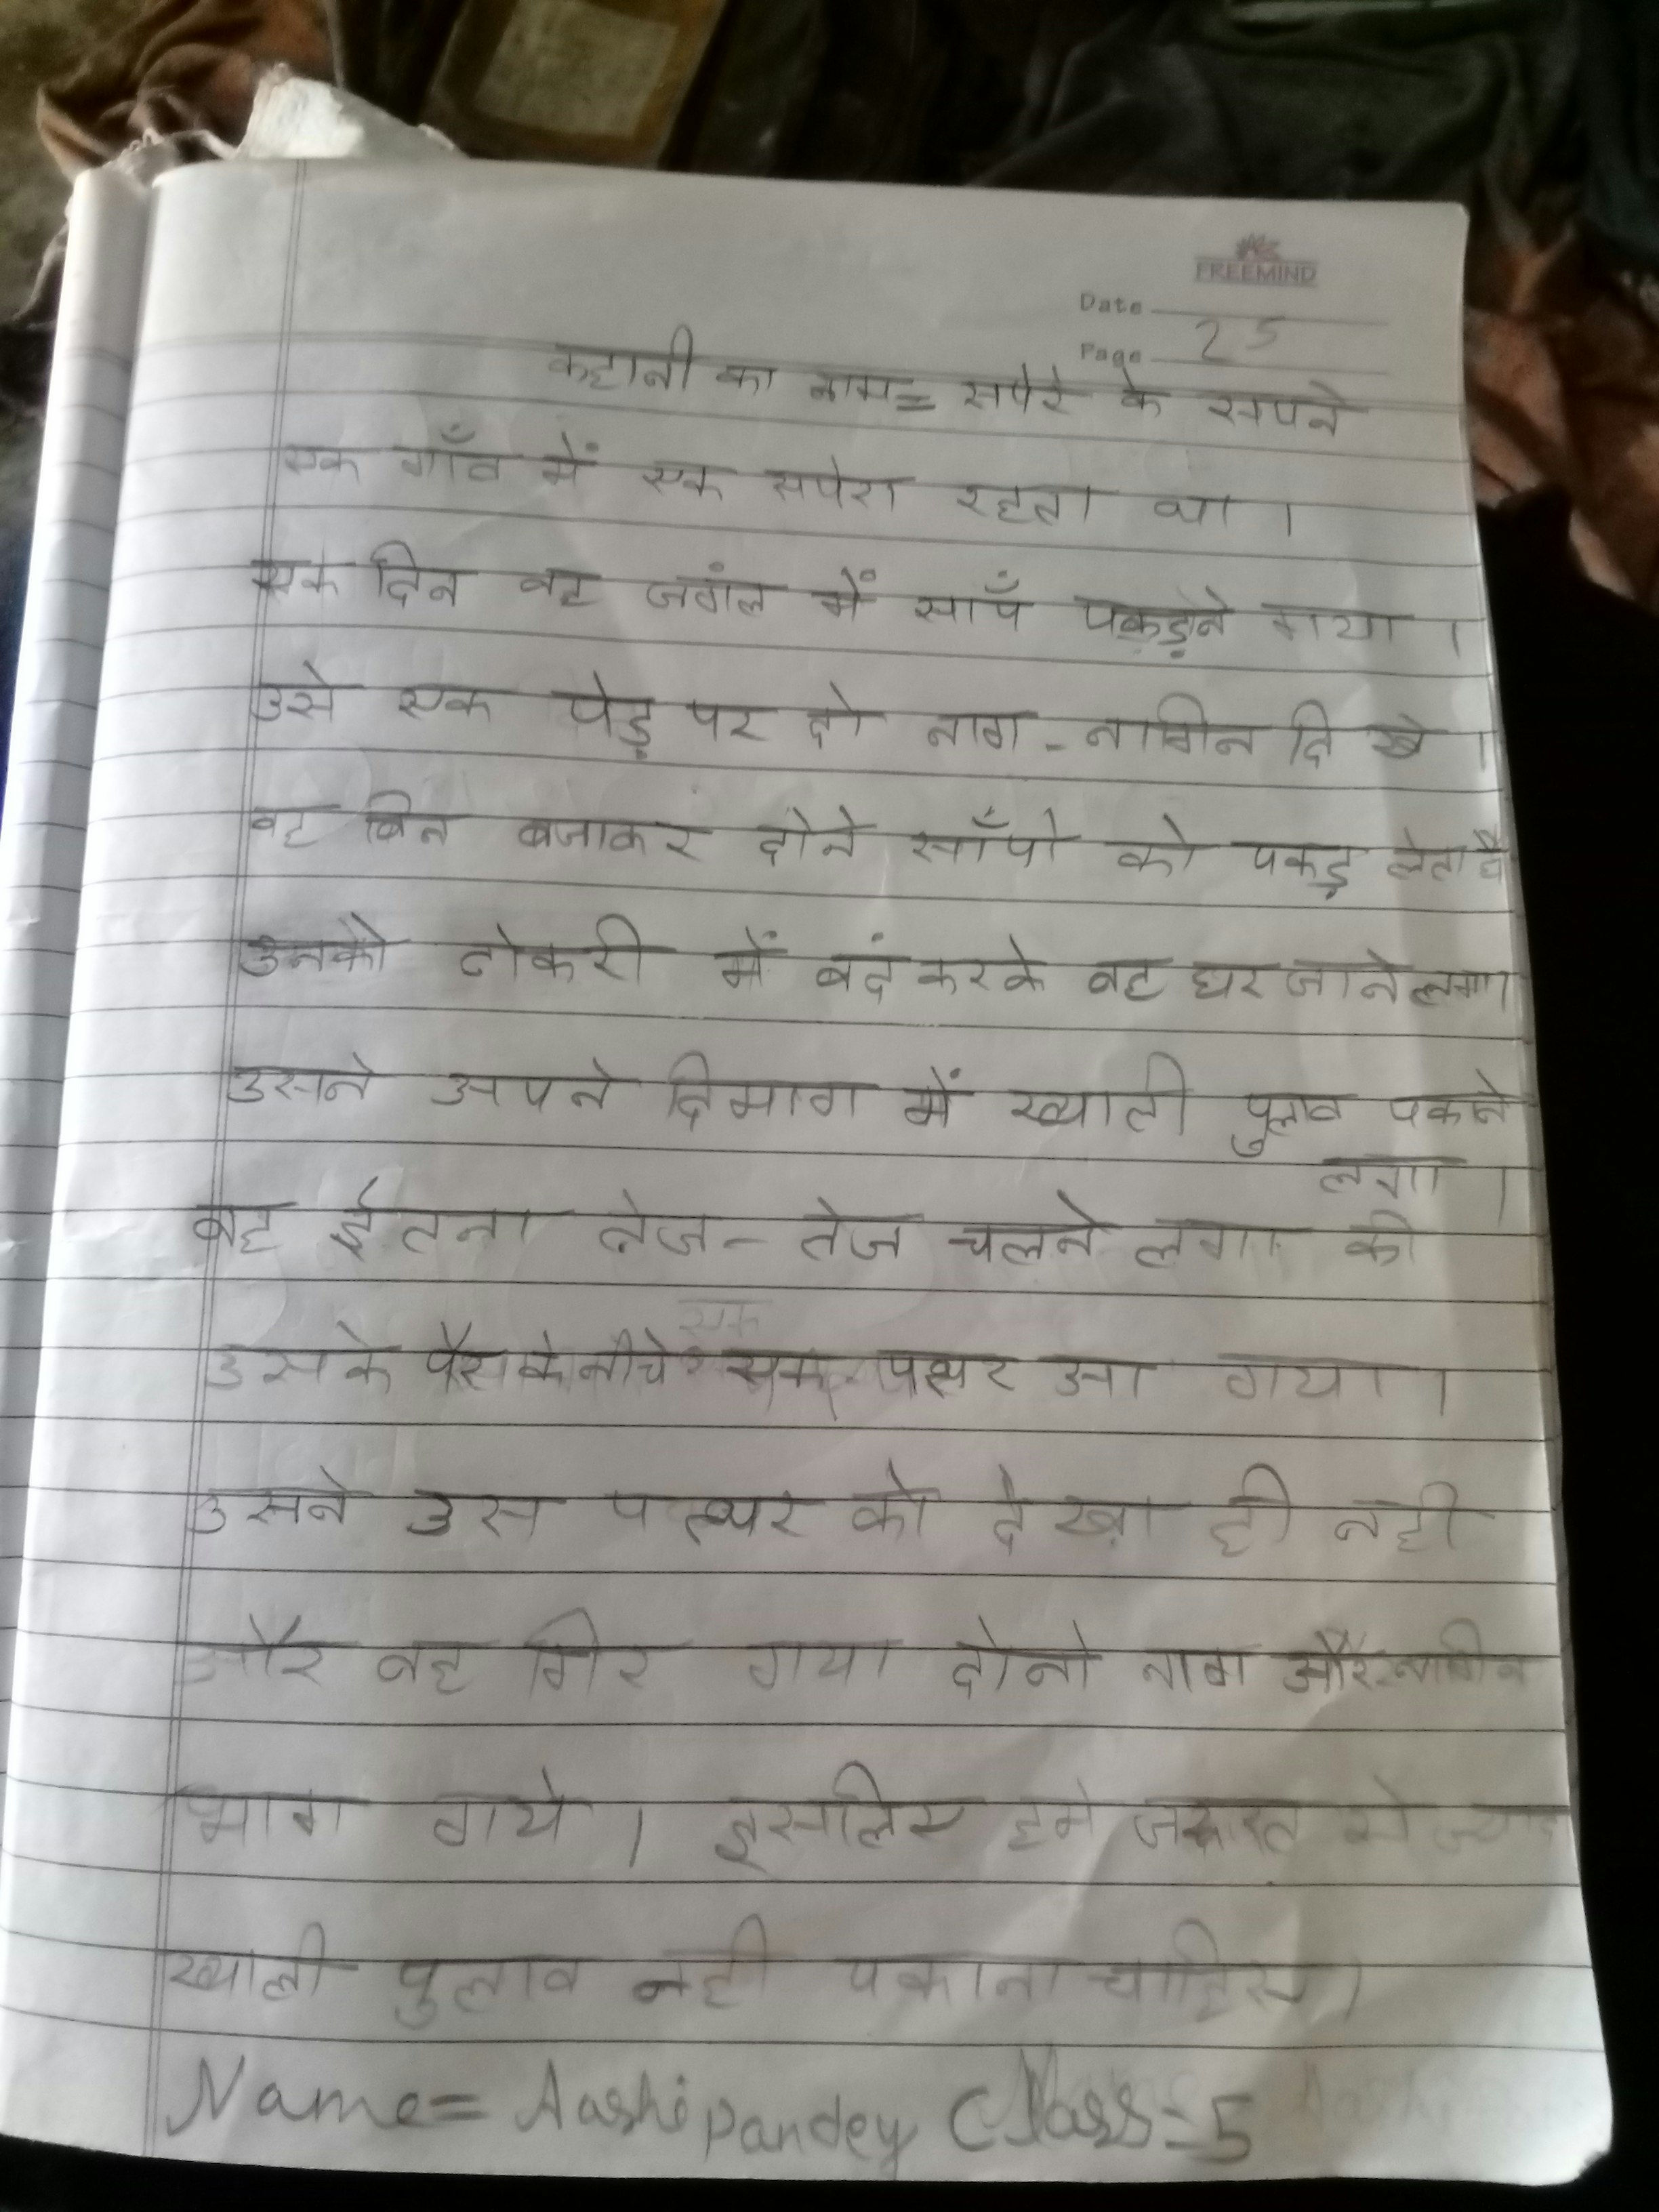 FREEMIND
Date
Page 25
कहानी का नाम= सपेरे के सपने
एक गाँव में एक सपेरा रहता था ।
एक दिन वह जगंल में सापँ पकड़ने गया ।
उसे एक पेड़ पर दो नाग - नागिन दिखे ।
वह बिन बजाकर दोने साँपो को पकड़ लेता है
उनको टोकरी में बदं करके वह घर जाने लगा।
उसने अपने दिमाग में ख्याली पुलाव पकाने
लगा ।
वह ईतना तेज - तेज चलने लगा की
उसके पैर के नीचे एक पत्थर आ गया ।
उसने उस पत्थर को देखा ही नही
और वह गिर गया दोनो नाग और नागीन
भाग गये । इसलिए हमे जरूरत से ज्यादा
ख्याली पुलाव नही पकाना चाहिए ।
Name= Aashi pandey Class=5